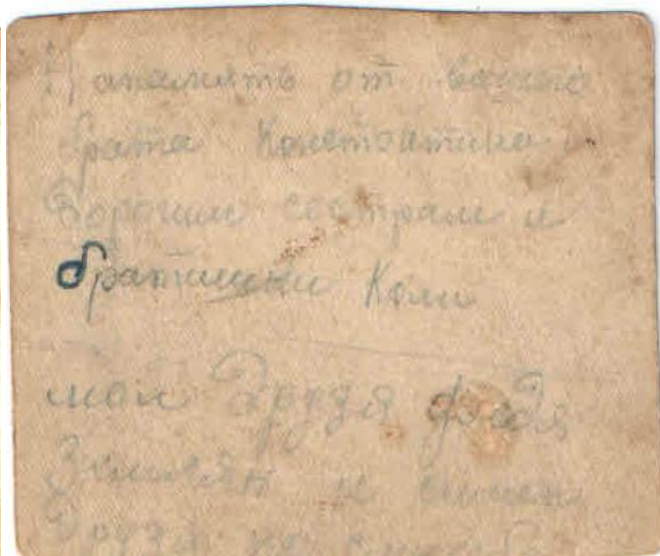 Напамять от вашего
брата Константина
Дорогим сестрам и
братишки Коли
мои Друзя федя
Земляк и